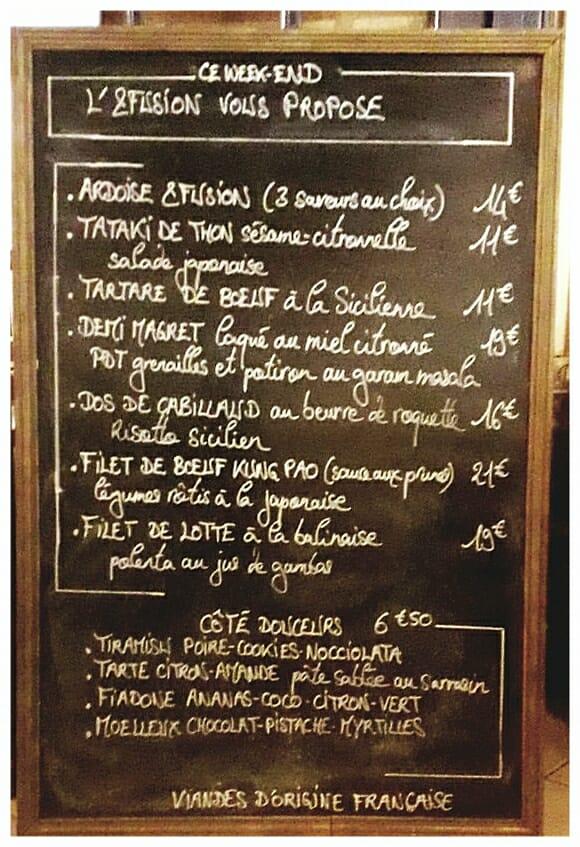 CE WEEK-END
L'&FUSION VOUS PROPOSE
. ARDOISE &FUSION (3 saveurs au choix) 14€
. TATAKI DE THON sésame-citronnelle 11€
salade japonaise
. TARTARE DE BOEUF à la Sicilienne 11€
. DEMI MAGRET laqué au miel citronné 19€
PDT grenailles et potiron au garam masala
. DOS DE CABILLAUD au beurre de roquette 16€
Risotto sicilien
. FILET DE BOEUF KUNG PAO (sauce aux prunes) 21€
légumes rôtis à la japonaise
. FILET DE LOTTE à la balinaise 19€
polenta au jus de gambas
CÔTÉ DOUCEURS 6€50
. TIRAMISU POIRE-COOKIES-NOCCIOLATA
. TARTE CITRON-AMANDE pâte sablée au Sarrasin
. FIADONE ANANAS-COCO-CITRON-VERT
. MOELLEUX CHOCOLAT-PISTACHE-MYRTILLES
VIANDES D'ORIGINE FRANÇAISE